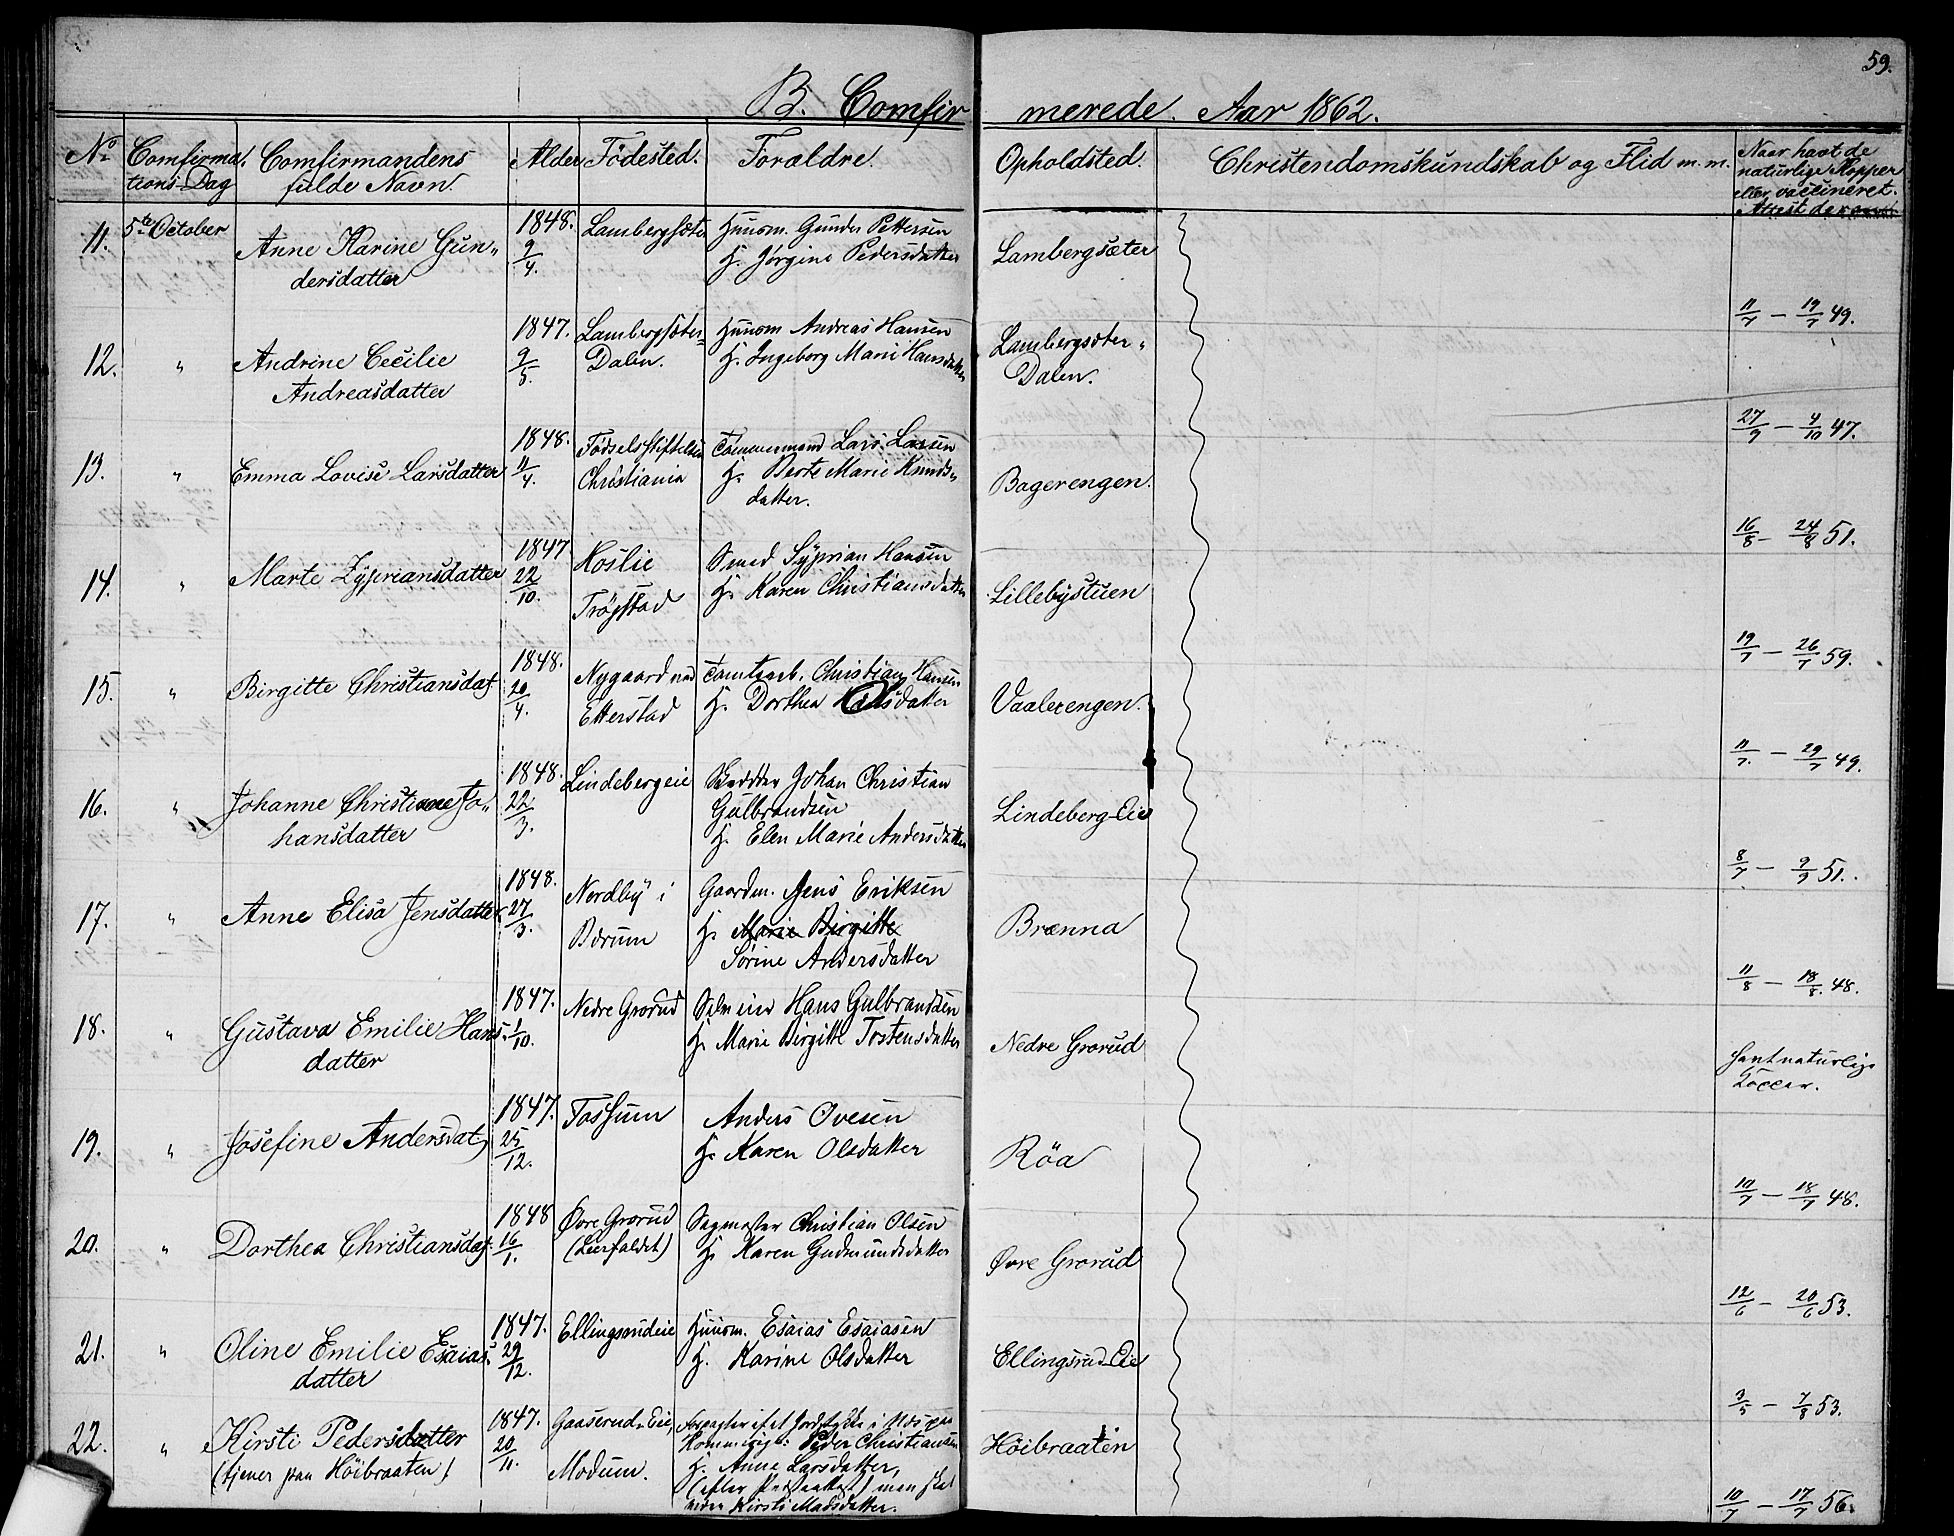 59.
B. Comfirmerede. Aar 1862.
No Comfirmations-Dag Comfirmandens fulde Navn. Alder Födested. Forældre. Opholdsted. Christendomskundskab og Flid m. m. Naar havt de naturlige Kopper eller vaccineret. Attest derom
11. 5te October Anne Karine Gun„ 1848. Lambergsæter Huusm. Gunder Pettersen Lambergsæter
dersdatter 9/4. H. Jörgine Pedersdatter
11/7 – 19/7 49.
12. " Andrine Cecilie 1847. Lambergsæter„ Huusm Andreas Hansen Lambergsæter„
Andreasdatter 9/5. Dalen. H. Ingeborg Marie Hansdatter Dalen.
27/9 – 4/10 47.
13. " Emma Lovise Larsdatter 1848. Fødselsstiftelsen Tømmermand Lars Larsen Bagerengen.
11/4. Christiania H. Berte Marie Knuds„
datter.
16/8 – 24/8 51.
14. " Marte Zÿpriansdatter 1847 Hoslie Smed Sÿprian Hansen Lillebÿstuen
22/10. Trøgstad H. Karen Christiansdatter
19/7 – 26/7 59.
15. " Birgitte Christiansdat. 1848. Nygaard ved Christian Hansen Vaalerengen.
20/4. Etterstad H. Dorthea Olsdatter
11/7. – 29/7 49.
16. " Johanne Christiane Jo„ 1848. Lindebergeie Johan Christian Lindeberg-Eie
hansdatter 22/3. Gulbrandsen
H. Elen Marie Andersdatter
8/7 – 9/7 51.
17. " Anne Elisa Jensdatter 1848. Nordby i Gaardm. Jens Eriksen Brænna
27/3. Bærum H. Marie Birgitte
Sörine Andersdatter
11/8 – 18/8. 48.
18. " Gustava Emilie Hans„ 1847. Nedre Grorud Hans Gulbrandsen Nedre Grorud
datter 1/10. H. Marie Birgitte Tostensdatter
havt naturlige
Kopper.
19. " Josefine Andersdat. 1847. Fossum Anders Ovesen Röa
25/12. H. Karen Olsdatter
10/7 – 18/7 48.
20. " Dorthea Christiansdat. 1848 Øvre Grorud Sagmester Christian Olsen Øvre Grorud
16/1. (Leerfaldet) H. Karen Gudmundsdatter
12/6 – 20/6 53.
21. " Oline Emilie Esaias„ 1847. Ellingsrudeie Huusm. Esaias Esaiasen Ellingsrud-Eie
datter 29/12. H. Karine Olsdatter
3/5 – 7/8 53.
22. " Kirsti Pedersdatter 1847. Gaaserud-Eie, Forpagter af et Jordstykke i Næs paa Höibraaten
(tjener paa Höibraaten) 20/11. Modum. Peder Christiansen
H. Anne Larsdatter,
(efter Præsteattest) men skal
være Kirsti Madsdatter.
10/7 – 17/7 56.